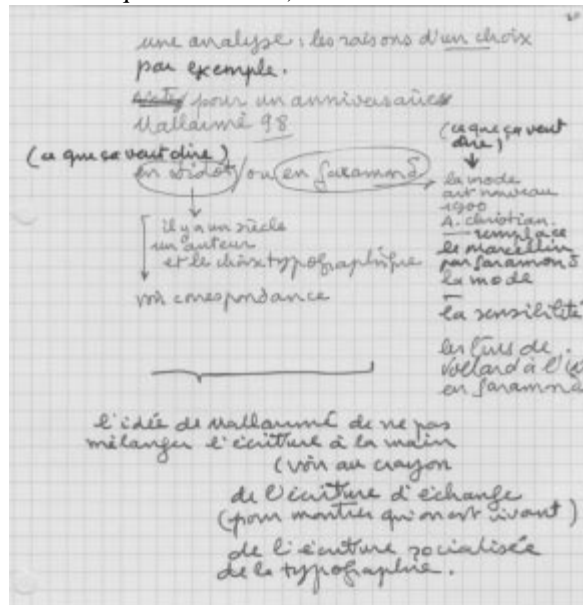 une analyse : les raisons d'un choix
par exemple.
pour un anniversaire
Mallarmé 98
(ce que ça veut dire)
en Didot / ou en Garamond
il y a un siècle
un auteur
et le choix typographique
voir correspondance
(ce que ça veut
dire)
la mode
art nouveau
1900
A. Christian.
remplace
le Marcellin
par Garamond
la mode
la sensibilité
les livres de
Vollard à l'
en Garamond
l'idée de Mallarmé de ne pas
mélanger l'écriture à la main
(voir au crayon
de l'écriture d'échange
(pour montrer qu'on est vivant)
de l'écriture socialisée
de la typographie.